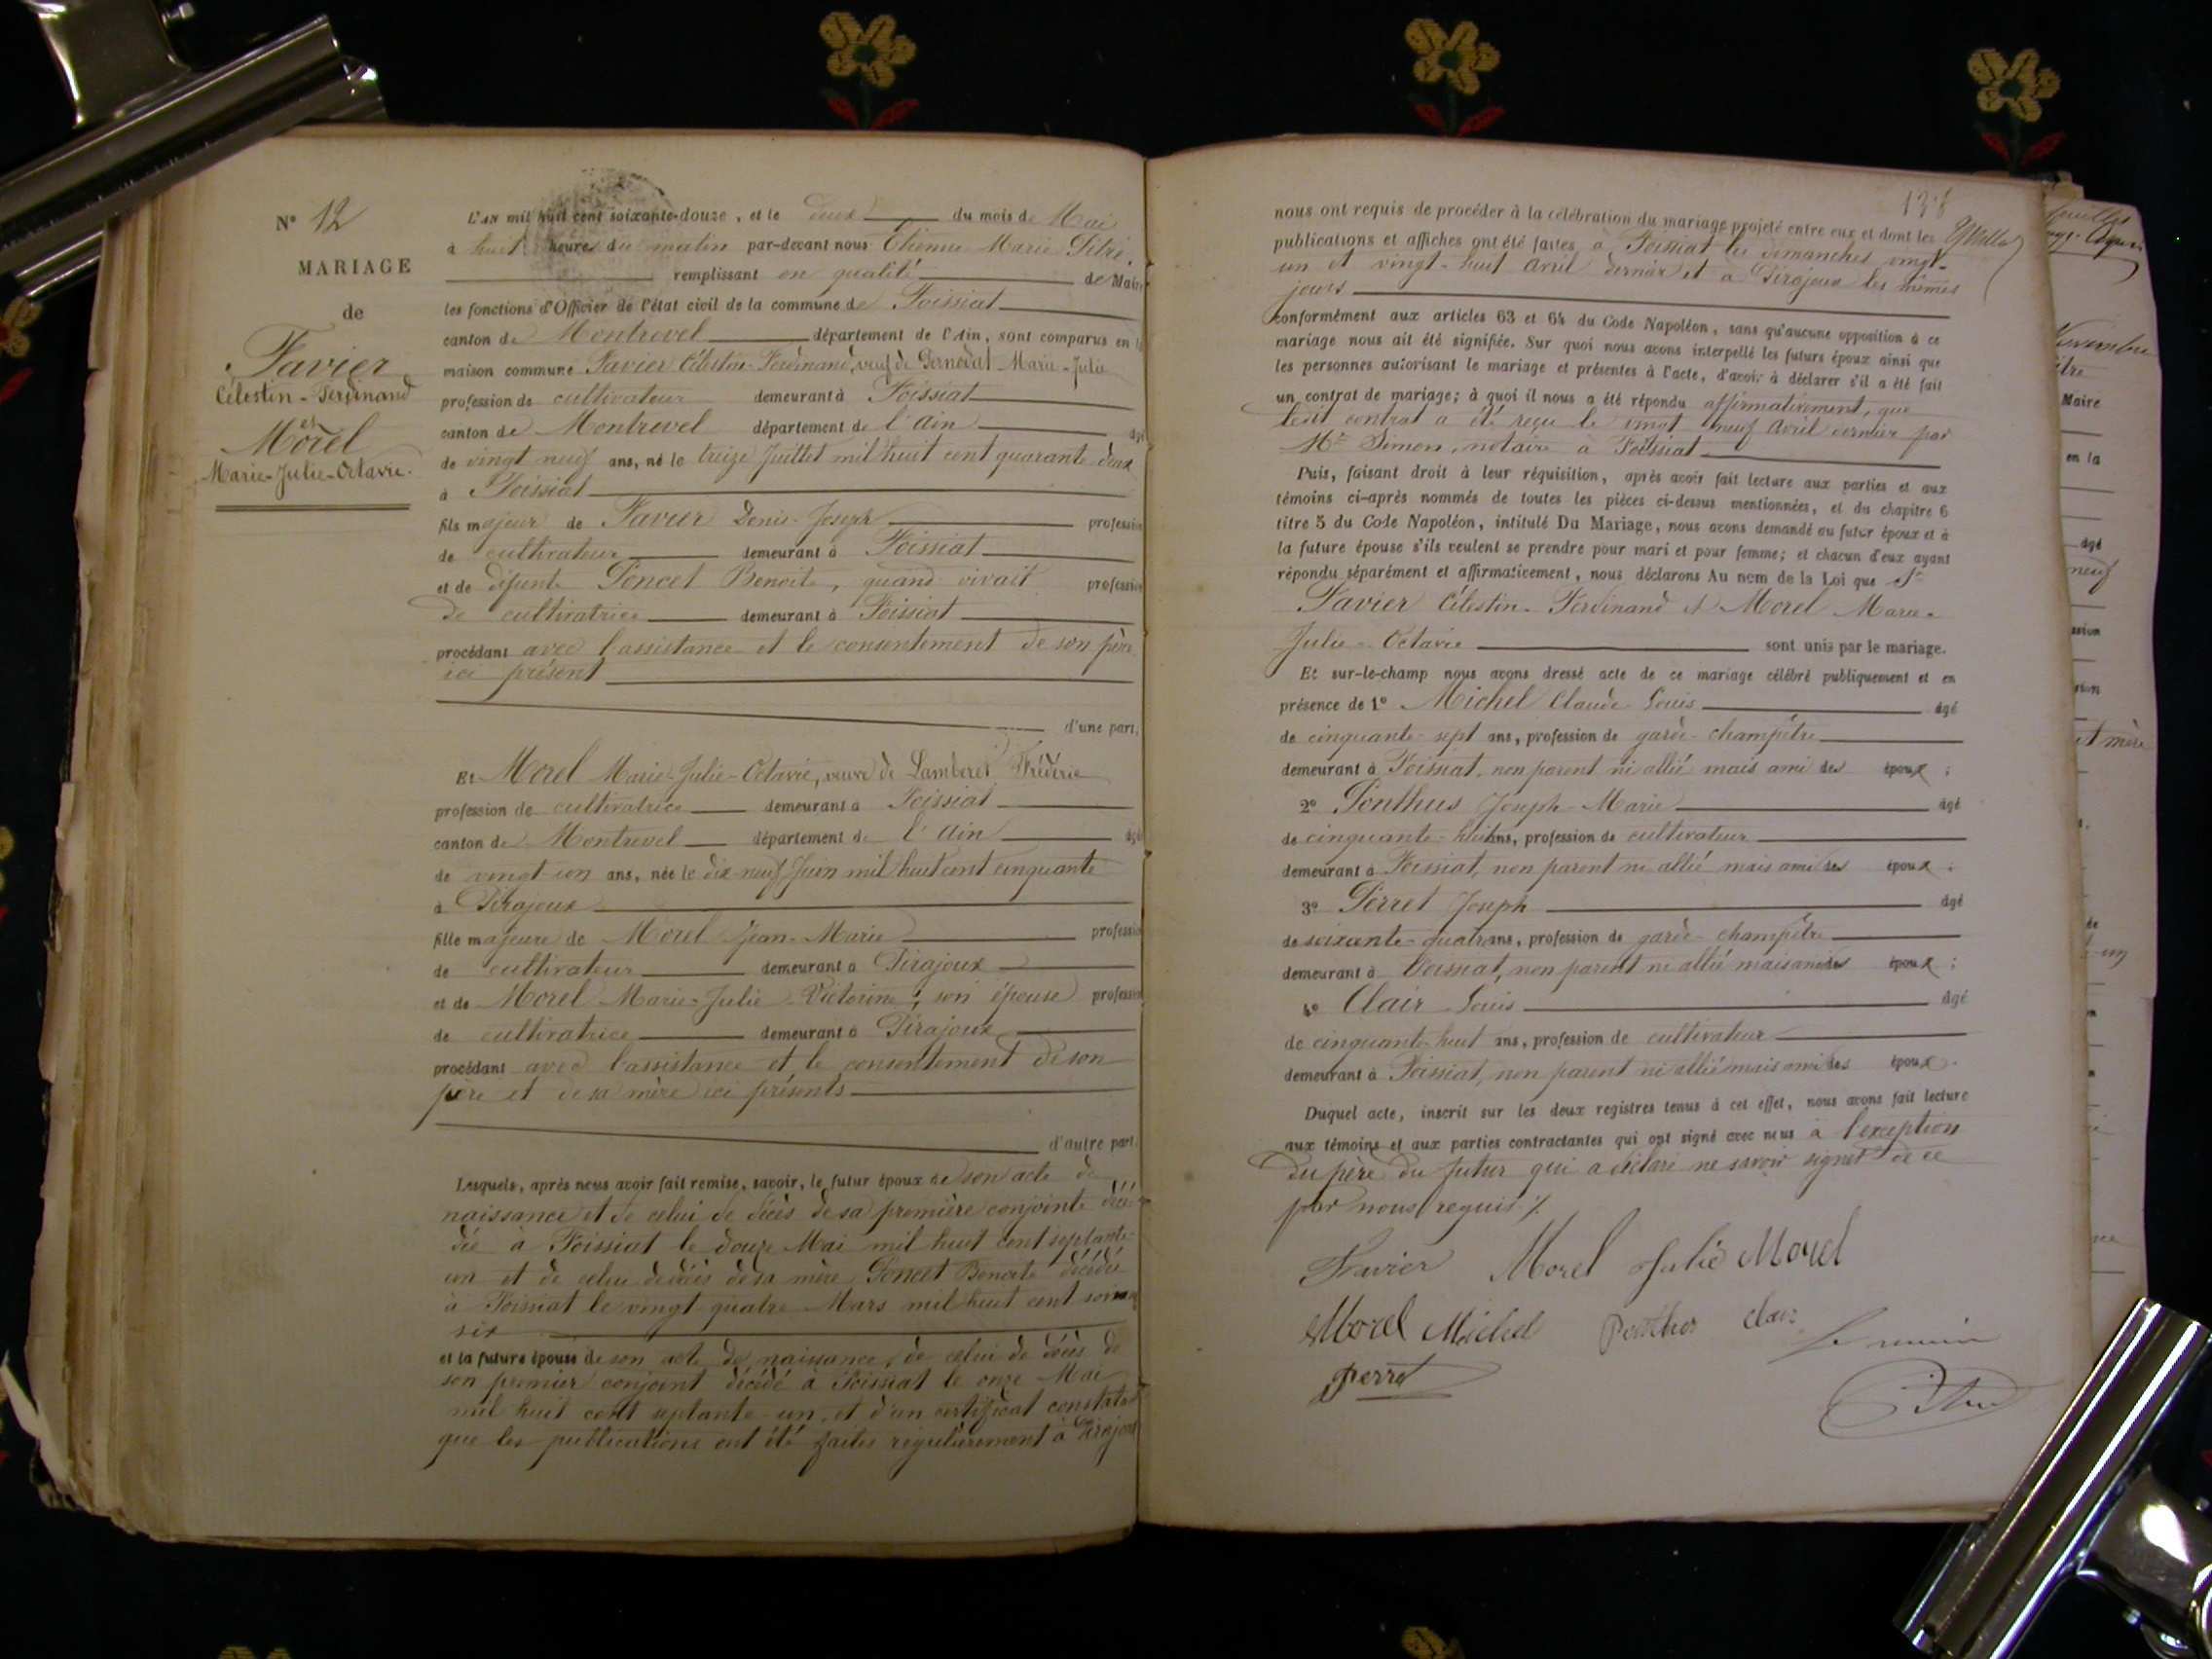 N° 12
MARIAGE
de
Favier
Célestin-Ferdinand
et
Morel
Marie-Julie-Octavie.
L'AN mil huit cent soixante-douze, et le deux du mois de Mai
à huit heures du matin par-devant nous Etienne Marie Pitre,
remplissant en qualité de Maire
les fonctions d'Officier de l'état civil de la commune de Foissiat
canton de Montrevel département de l'Ain, sont comparus en la
maison commune Favier Célestin-Ferdinand, veuf de Marie-Julie
profession de cultivateur demeurant à Foissiat
canton de Montrevel département de l'Ain âgé
de vingt neuf ans, né le treize Juillet mil huit cent quarante deux
à Foissiat
fils majeur de Favier Denis-Joseph profession
de cultivateur demeurant à Foissiat
et de défunte Poncet Benoite, quand vivait profession
de cultivatrice demeurant à Foissiat
procédant avec l'assistance et le consentement de son père
ici présent
d'une part,
Et Morel Marie-Julie-Octavie, veuve de Lamberet Frédéric
profession de cultivatrice demeurant à Foissiat
canton de Montrevel département de l'Ain âgé
de vingt-un ans, née le dix-neuf Juin mil huit cent cinquante
à Pirajoux
fille majeure de Morel Jean-Marie profession
de cultivateur demeurant à Pirajoux
et de Morel Marie-Julie-Victorine, son épouse profession
de cultivatrice demeurant à Pirajoux
procédant avec l'assistance et le consentement de son
père et de sa mère ici présents
d'autre part.
Lesquels, après nous avoir fait remise, savoir, le futur époux de son acte de
naissance et de celui de décès de sa première conjointe décé-
dée à Foissiat le douze Mai mil huit cent septante-
un et de celui de décès de sa mère Poncet Benoite décédée
à Foissiat le vingt-quatre Mars mil huit cent soixante
six
et la future épouse de son acte de naissance, de celui de décès de
son premier conjoint décédé à Foissiat le onze Mai
mil huit cent septante-un, et d'un certificat constatant
que les publications ont été faites régulièrement à Pirajoux
138
nous ont requis de procéder à la célébration du mariage projeté entre eux et dont les
publications et affiches ont été faites à Foissiat les dimanches vingt-
un et vingt-huit avril dernier et à Pirajoux les mêmes
jours
conformément aux articles 63 et 64 du Code Napoléon, sans qu'aucune opposition à ce
mariage nous ait été signifiée. Sur quoi nous avons interpellé les futurs époux ainsi que
les personnes autorisant le mariage et présentes à l'acte, d'avoir à déclarer s'il a été fait
un contrat de mariage; à quoi il nous a été répondu affirmativement, que
ledit contrat a été reçu le vingt neuf avril dernier par
Me Simon, notaire à Foissiat
Puis, faisant droit à leur réquisition, après avoir fait lecture aux parties et aux
témoins ci-après nommés de toutes les pièces ci-dessus mentionnées, et du chapitre 6
titre 5 du Code Napoléon, intitulé Du Mariage, nous avons demandé au futur époux et à
la future épouse s'ils veulent se prendre pour mari et pour femme; et chacun d'eux ayant
répondu séparément et affirmativement, nous déclarons Au nom de la Loi que Sr
Favier Célestin-Ferdinand et Morel Marie-
Julie-Octavie sont unis par le mariage.
Et sur-le-champ nous avons dressé acte de ce mariage célébré publiquement et en
présence de 1° Michel Claude Louis âgé
de cinquante-sept ans, profession de garde-champêtre
demeurant à Foissiat, non parent ni allié mais ami des époux;
2° Ponthus Joseph-Marie âgé
de cinquante-huit ans, profession de cultivateur
demeurant à Foissiat, non parent ni allié mais ami des époux;
3° Perret Joseph âgé
de soixante-quatre ans, profession de garde-champêtre
demeurant à Foissiat, non parent ni allié mais ami des époux;
4° Clair Louis âgé
de cinquante-huit ans, profession de cultivateur
demeurant à Foissiat, non parent ni allié mais ami des époux.
Duquel acte, inscrit sur les deux registres tenus à cet effet, nous avons fait lecture
aux témoins et aux parties contractantes qui ont signé avec nous à l'exception
du père du futur qui a déclaré ne savoir signer de ce
par nous requis
Favier Morel Julie Morel
Morel Michel Ponthus Clair Le maire
Perret
Pitre
Novembre
Maire
en la
âgé
neuf
et mère